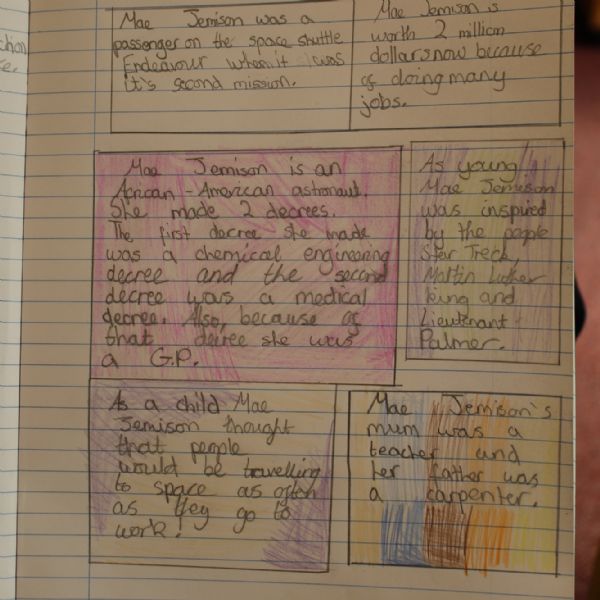 chan
se.
Mae Jemison was a
passenger on the space shuttle
Endeavour when it was
it's second mission.
Mae Jemison is
worth 2 million
dollars now because
of doing many
jobs.
Mae Jemison is an
African-American astronaut.
She made 2 decrees.
The first decree she made
was a chemical engineering
decree and the second
decree was a medical
decree. Also, because of
that decree she was
a G.P.
As young
Mae Jemison
was inspired
by the people
Ster Treck,
Martin Luther
king and
Lieutenant
Palmer.
As a child Mae
Jemison thought
that people
would be travelling
to space as often
as they go to
work!
Mae Jemison's
mum was a
teacher and
her father was
a carpenter.